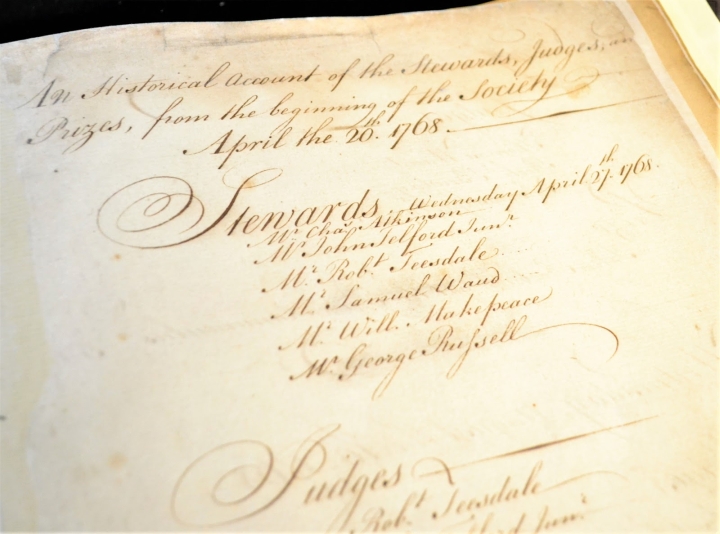 An Historical Account of the Stewards, Judges, an
Prizes, from the beginning of the Society
April the 20th. 1768.
Stewards Wednesday April 27th. 1768.
Mr. Chas. Atkinson
Mr. John Telford Junr.
Mr. Robt. Teesdale
Mr. Samuel Waud
Mr. Will. Makepeace
Mr. George Russell
Judges
Robt. Teesdale
Junr.